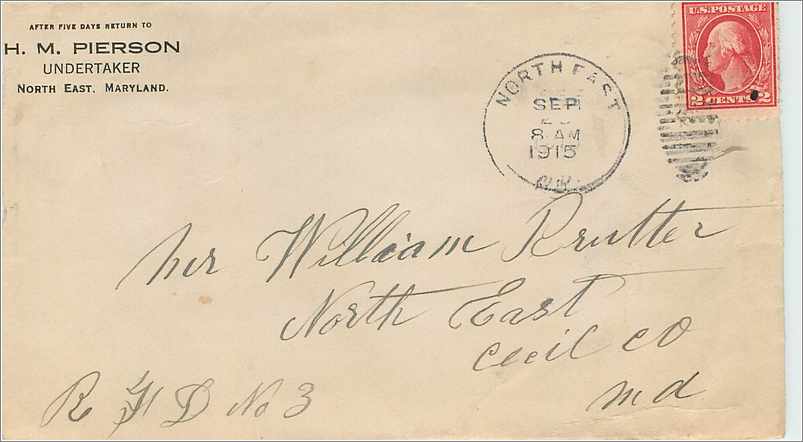 AFTER FIVE DAYS RETURN TO
H. M. PIERSON
UNDERTAKER
NORTH EAST, MARYLAND.
U.S. POSTAGE
2 CENTS 2
NORTH EAST
SEP
8 AM
1915
Mr William Rutter
North East
Cecil Co
R F D No 3
Md